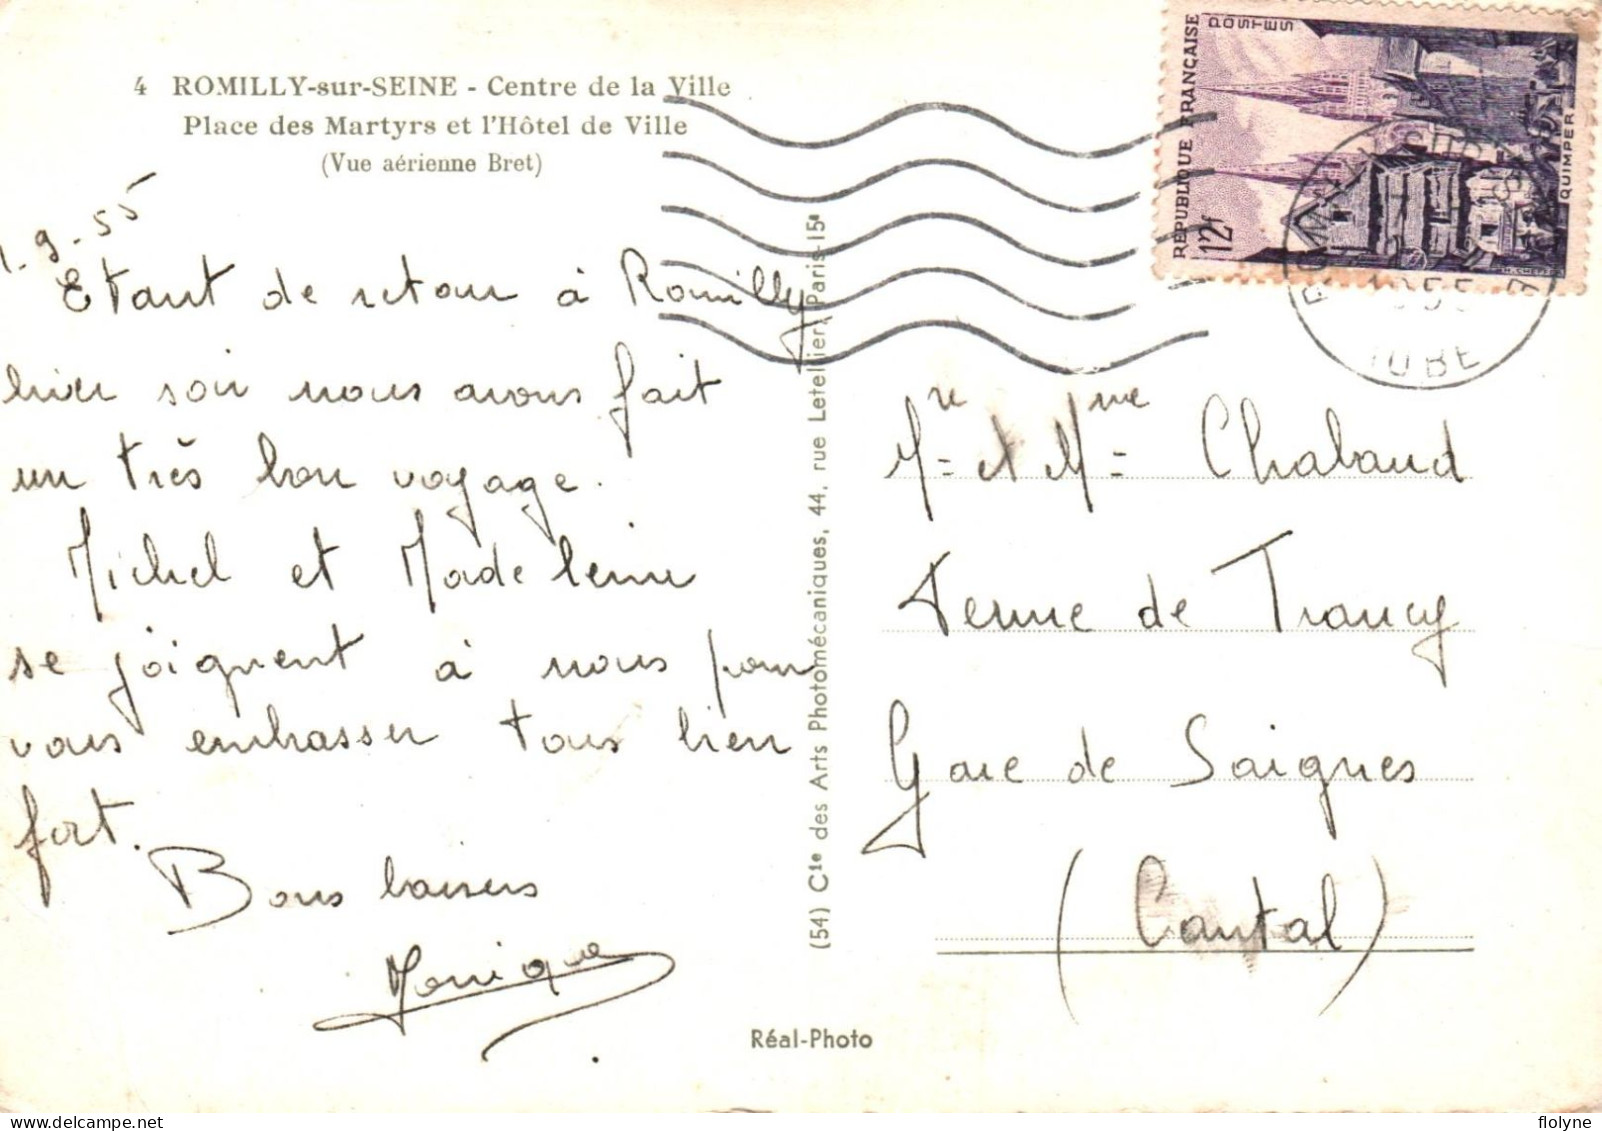 4 ROMILLY-sur-SEINE - Centre de la Ville
Place des Martyrs et l'Hôtel de Ville
(Vue aérienne Bret)
1-9-55
Etant de retour à Romilly
hier soir nous avons fait
un très bon voyage.
Michel et Madeleine
se joignent à nous pour
vous embrasser tous bien
fort.
Bons baisers
Monique
(54) Cie des Arts Photomécaniques, 44, rue Letellier, Paris-15e
Réal-Photo
RÉPUBLIQUE FRANÇAISE
POSTES
12f
QUIMPER
1955
AUBE
Mr et Mme Chabaud
Ferme de Trancy
Gare de Saignes
(Cantal)
flolyne